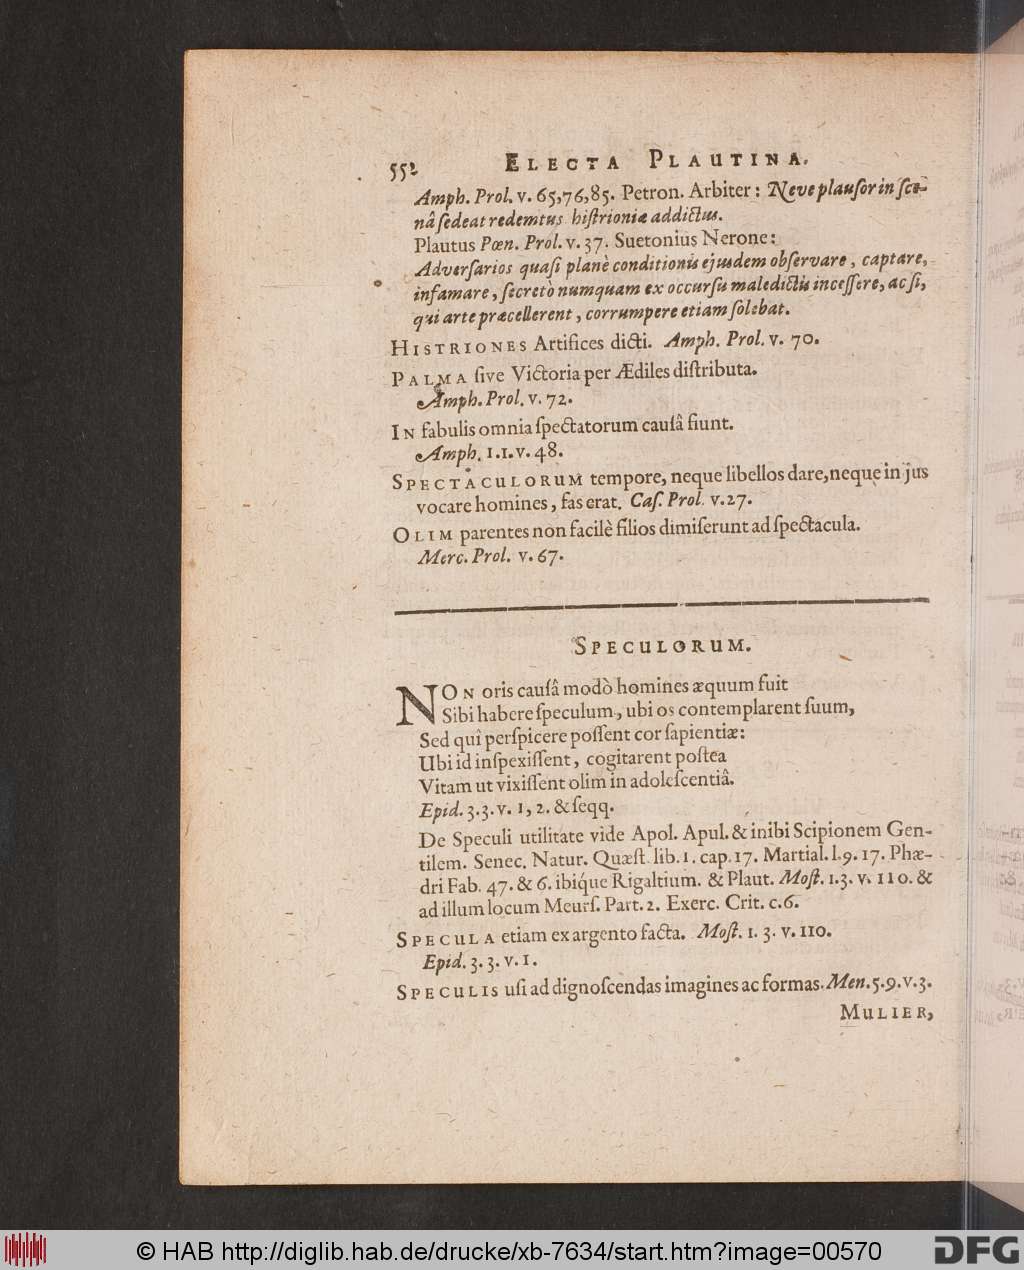 552 ELECTA PLAUTINA.
Amph. Prol. v. 65,76,85. Petron. Arbiter: Neve plauſor in ſce-
nâ ſedeat redemtus hiſtrioniæ addictus.
Plautus Pœn. Prol. v. 37. Suetonius Nerone:
Adverſarios quaſi planè conditionis ejusdem obſervare, captare,
infamare, ſecretò numquam ex occurſu maledictis inceſſere, ac ſi,
qui arte præcellerent, corrumpere etiam ſolebat.
HISTRIONES Artifices dicti. Amph. Prol. v. 70.
PALMA ſive Victoria per Ædiles diſtributa.
Amph. Prol. v. 72.
IN fabulis omnia ſpectatorum cauſâ fiunt.
Amph. 1.1. v. 48.
SPECTACULORUM tempore, neque libellos dare, neque in jus
vocare homines, fas erat. Caſ. Prol. v. 27.
OLIM parentes non facilè filios dimiſerunt ad ſpectacula.
Merc. Prol. v. 67.
SPECULORUM.
NON oris cauſâ modò homines æquum fuit
Sibi habere ſpeculum, ubi os contemplarent ſuum,
Sed quî perſpicere poſſent cor ſapientiæ:
Ubi id inſpexiſſent, cogitarent poſtea
Vitam ut vixiſſent olim in adoleſcentiâ.
Epid. 3.3. v. 1, 2. & ſeqq.
De Speculi utilitate vide Apol. Apul. & inibi Scipionem Gen-
tilem. Senec. Natur. Quæſt. lib. 1. cap. 17. Martial. l. 9. 17. Phæ-
dri Fab. 47. & 6. ibique Rigaltium. & Plaut. Moſt. 1.3. v. 110. &
ad illum locum Meurſ. Part. 2. Exerc. Crit. c. 6.
SPECULA etiam ex argento facta. Moſt. 1. 3. v. 110.
Epid. 3. 3. v. 1.
SPECULIS uſi ad dignoſcendas imagines ac formas. Men. 5.9. v. 3.
MULIER,
© HAB http://diglib.hab.de/drucke/xb-7634/start.htm?image=00570
DFG